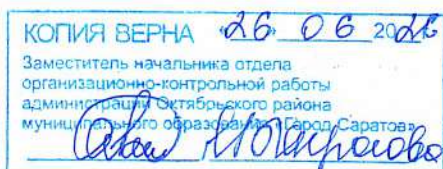 КОПИЯ ВЕРНА «26» 06 20
Заместитель начальника отдела
организационно-контрольной работы
администрации Октябрьского района
муниципального образования «Город Саратов»